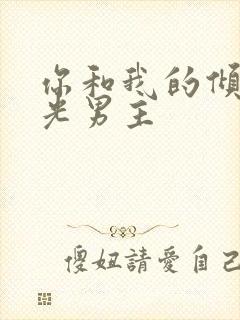 你和我的傾
光男主
傻妞請愛自己